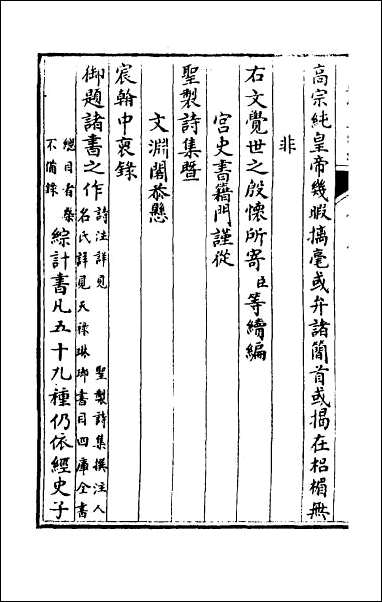 高宗純皇帝幾暇摛毫或弁諸簡首或揭在梠楣無
非
右文覺世之殷懷所寄臣等續編
宮史書籍門謹從
聖製詩集暨
文淵閣恭懸
宸翰中裒錄
御題諸書之作詩注詳見聖製詩集撰注人
名氏詳見天祿琳瑯書目四庫全書
總目者槩
不備錄綜計書凡五十九種仍依經史子